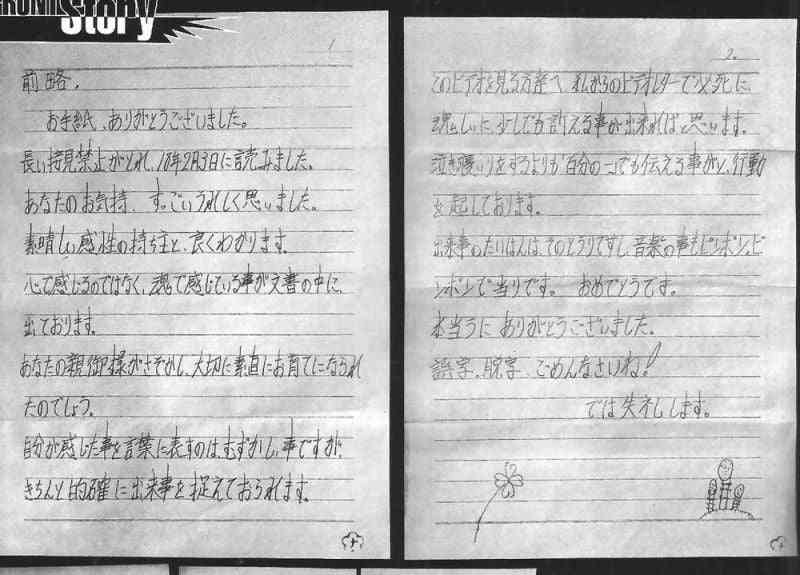 Story
1
前略、
お手紙、ありがとうございました。
長い接見禁止がとれ、18年2月3日に読みました。
あなたのお気持、すっごいうれしく思いました。
素晴しい感性の持ち主と、良くわかります。
心で感じるのではなく、魂で感じている事が文書の中に、
出ております。
あなたの親御様がさぞかし、大切に素直にお育てになられ
たのでしょう。
自分が感じた事を言葉に表すのは、むずかしい事ですが、
きちんと的確に出来事を捉えておられます。
2.
このビデオを見る方達へ、私からのビデオレターで必死に、
魂しいに、少しでも訴える事が出来ればと思います。
泣き寝いりをするよりも百分の一でも伝える事がと、行動
を起しております。
出来事のたいはんは、そのとうりですし、音楽の事もピンポン、ピ
ンポンで当りです。おめでとうです。
本当うにありがとうございました。
誤字、脱字、ごめんなさいね!
では失礼します。